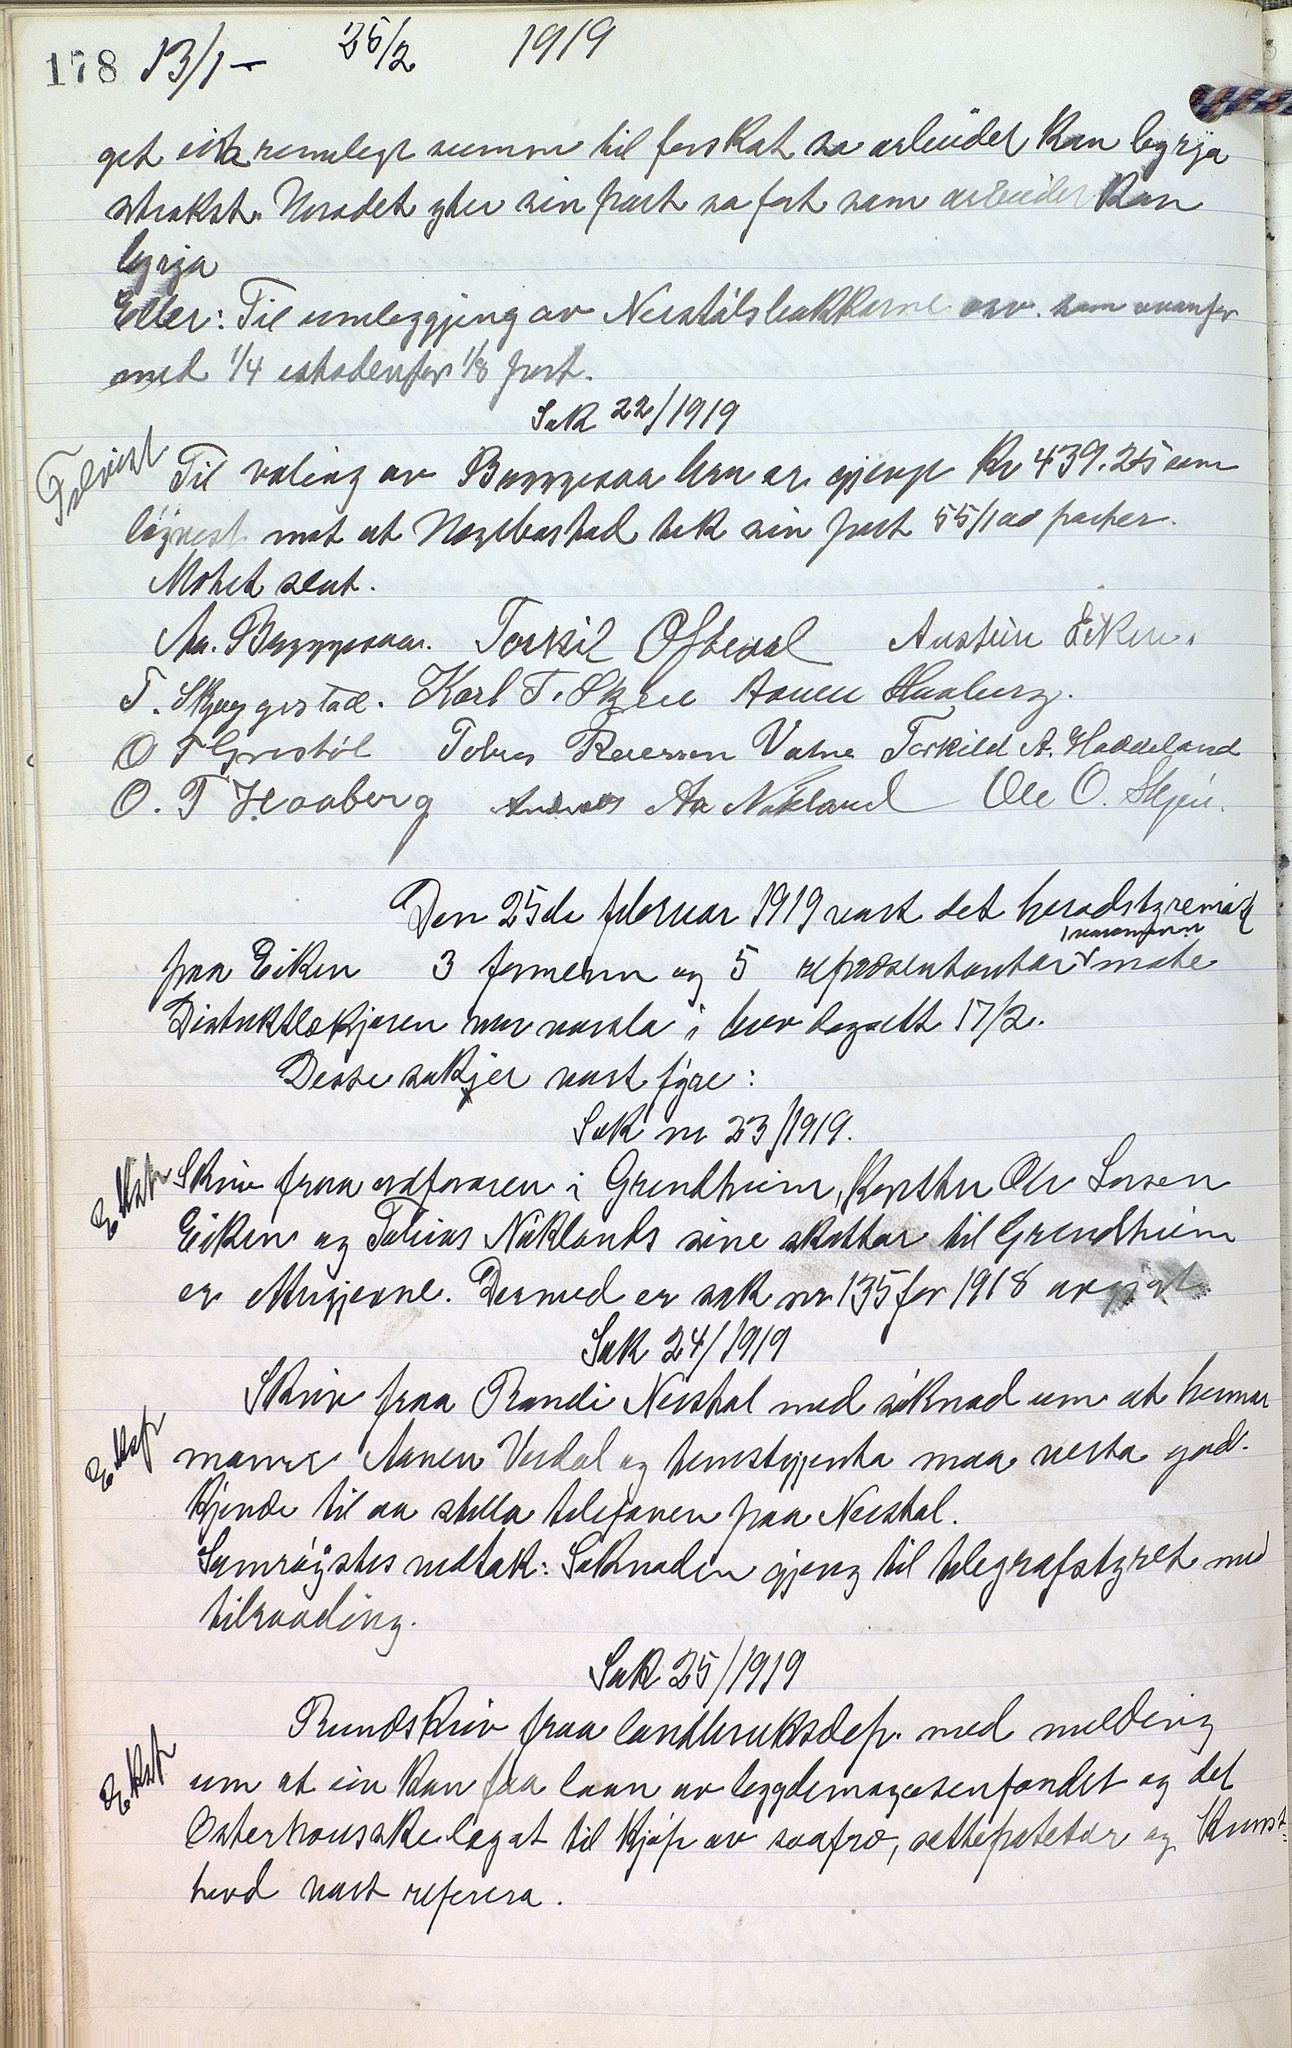 178 13/1 – 25/2 1919
get ei rimeleg summ til forskot so arbeidet kan byrja
strakst. Heradet yter sin part so fort som arbeidet kan
byrja
Eller: Til umleggjing av Neståls bakkarne osv. som ovanfor
med 1/4 istadenfor 1/8 part.
Sak 22/1919
Til voling av Byggjesaa bru er gjengje Kr 439.25 som
løyvest mot at Hægebostad tek sin part 55/100 parter.
Møtet slut.
Aa. Bryggesaa. Torkil Oftedal Austein Eiken.
T. Skeggestad. Karl T. Skjeie Aanen Haaberg.
O T Grostøl Tobias Reiersen Vatne Torkild A. Haddeland
O. T Haaberg Andreas Aa Nøkland Ole O. Skjei.
Den 25de februar 1919 vart det heradstyremøte
1 varamann
fraa Eiken 3 formenn og 5 representantar møtte
Distriktslækjaren var varsla i brev dagsett 17/2.
Desse sakjer vart fyre:
Sak nr 23/1919.
Eksp Skriv fraa ordføraren i Grindheim, Ole Larsen
Eiken og Tobias Nøklands sine skattar til Grindheim
er ettergjevne. Dermed er sak nr 135 for 1918 avgjort
Sak 24/1919
Skriv fraa Randi Neistal med søknad um at hennar
Eksp mann Aanen Verdal og tenestgjenta maa verta god-
kjende til aa stella telefonen paa Neistal.
Samrøystes vedtak: Søknaden gjeng til telegrafstyret med
tilraading.
Sak 25/1919
Rundskriv fraa landbruksdep. med melding
Eksp um at ein kan faa laan av bygdemagasenfondet og det
Osterhausske legat til kjøp av saafrø, settepoteter og kunst-
hevd vart referera.